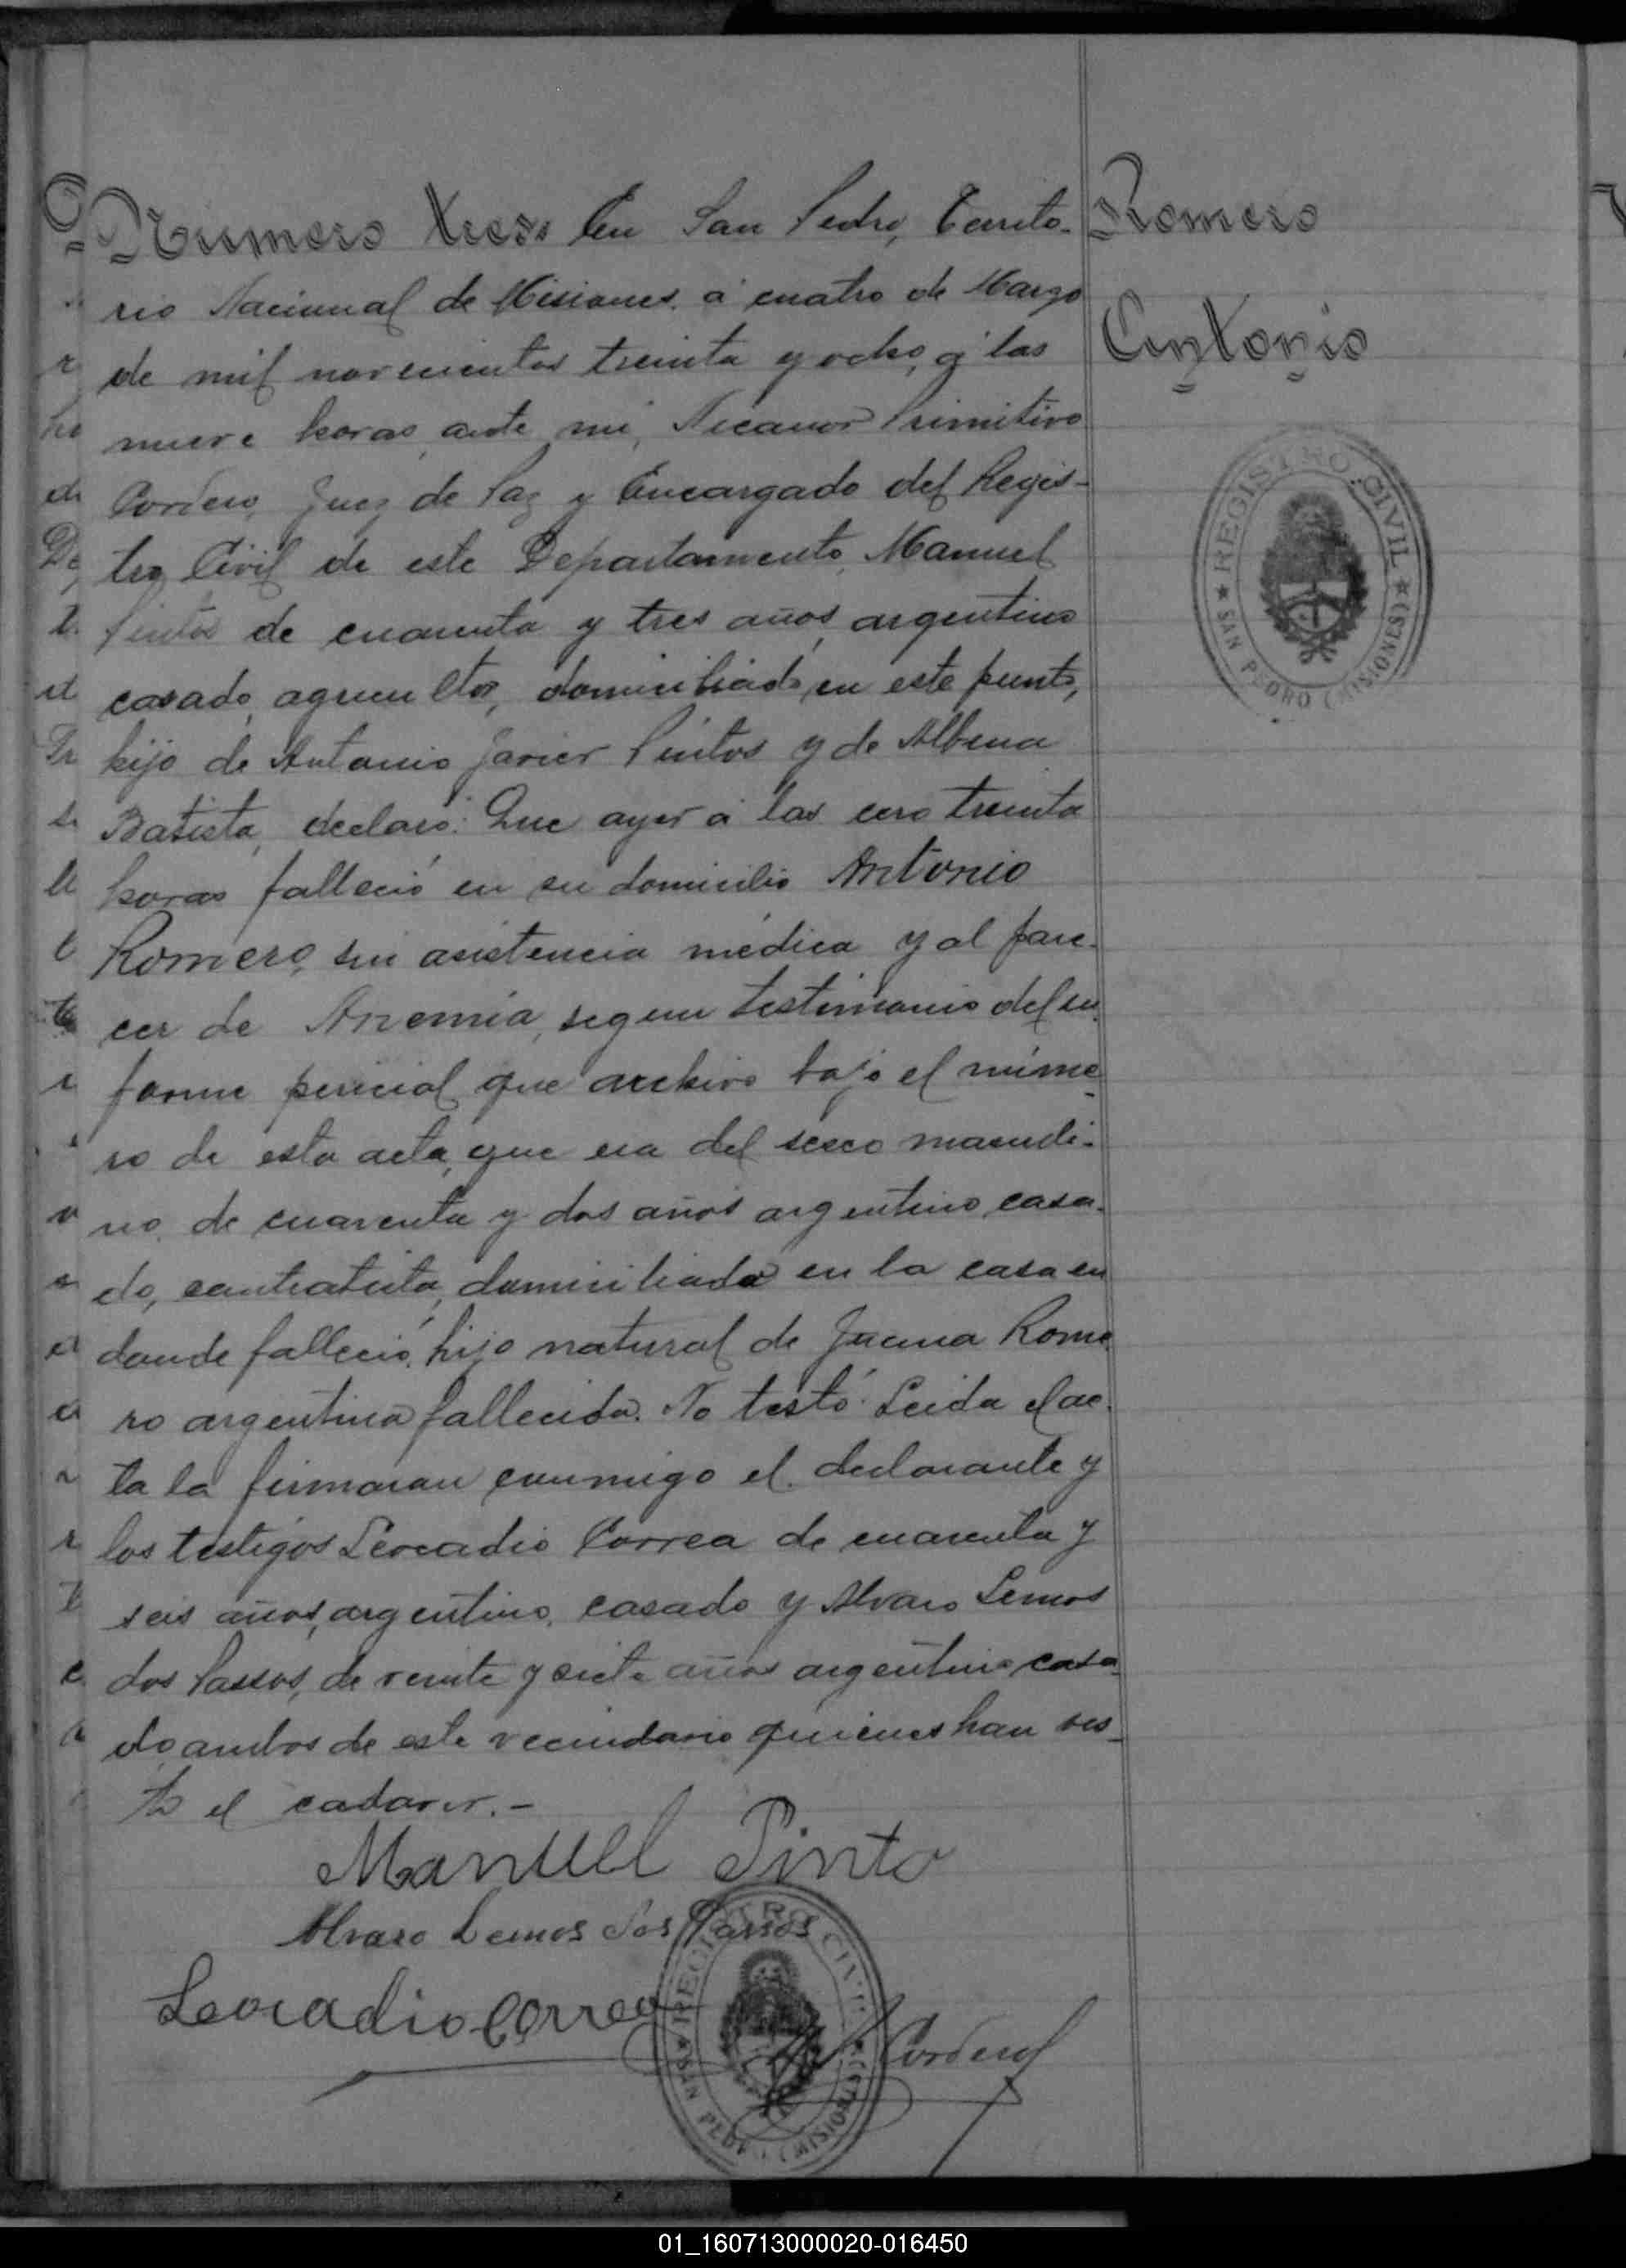 Numero tres. En San Pedro, Territo-
rio Nacional de Misiones, á cuatro de Marzo
de mil novecientos treinta y ocho, á las
nueve horas, ante mi, Nicanor Primitivo
Cordero, Juez de Paz y Encargado del Regis-
tro Civil de este Departamento, Manuel
Pintos de cuarenta y tres años, argentino
casado, agricultor, domiciliado en este punto,
hijo de Antonio Javier Pintos y de Albina
Batista, declaró: Que ayer á las cero treinta
horas falleció en su domicilio Antonio
Romero, sin asistencia médica y al pare-
cer de Anemia, segun testimonio del in
forme pericial que archivo bajo el núme-
ro de esta acta, que era del sexo masculi-
no, de cuarenta y dos años argentino, casa-
do, contratista, domiciliado en la casa en
donde falleció, hijo natural de Juana Rome
ro argentina fallecida. No testó. Leida el ac-
ta la firmaran conmigo el declarante y
los testigos Leocadio Correa de cuarenta y
seis años, argentino, casado y Alvaro Lemos
dos Passos, de veinte y siete años argentino casa-
do ambos de este vecindario quienes han vis-
to el cadaver.-
Manuel Pinto
Alvaro Lemos dos Passos
Leocadio Correa
Cordero
REGISTRO CIVIL
SAN PEDRO (MISIONES)
Romero
Antonio
REGISTRO CIVIL
SAN PEDRO (MISIONES)
01_160713000020-016450